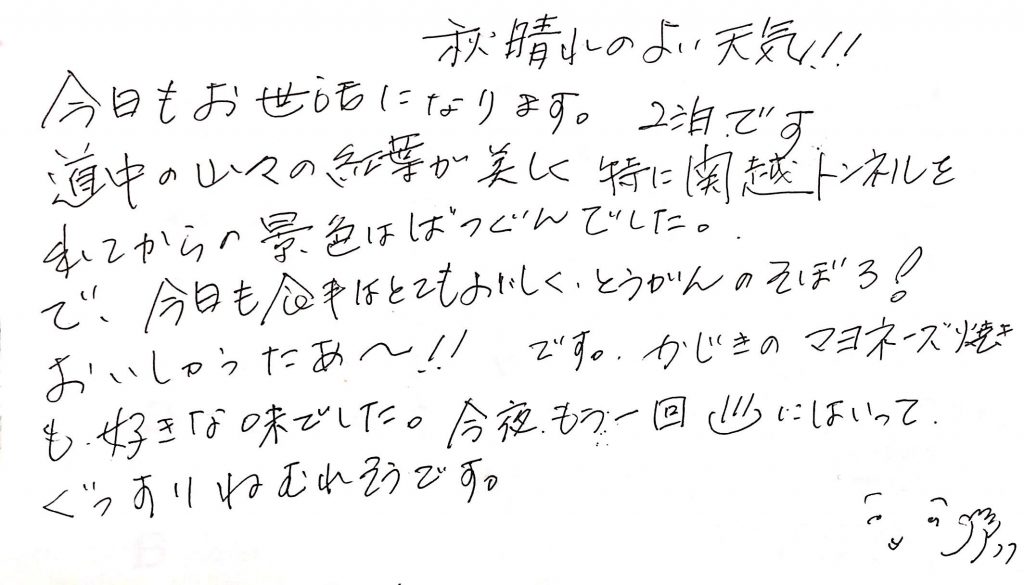 秋晴れのよい天気!!!
今日もお世話になります。 2泊です
道中の山々の紅葉が美しく 特に関越トンネルを
来てからの景色はばつぐんでした。
で、今日も食事はとてもおいしく、とうがんのそぼろ!
おいしゅうたあ〜!! です。かじきのマヨネーズ焼き
も好きな味でした。今夜、もう一回♨にはいって、
ぐっすりねむれそうです。